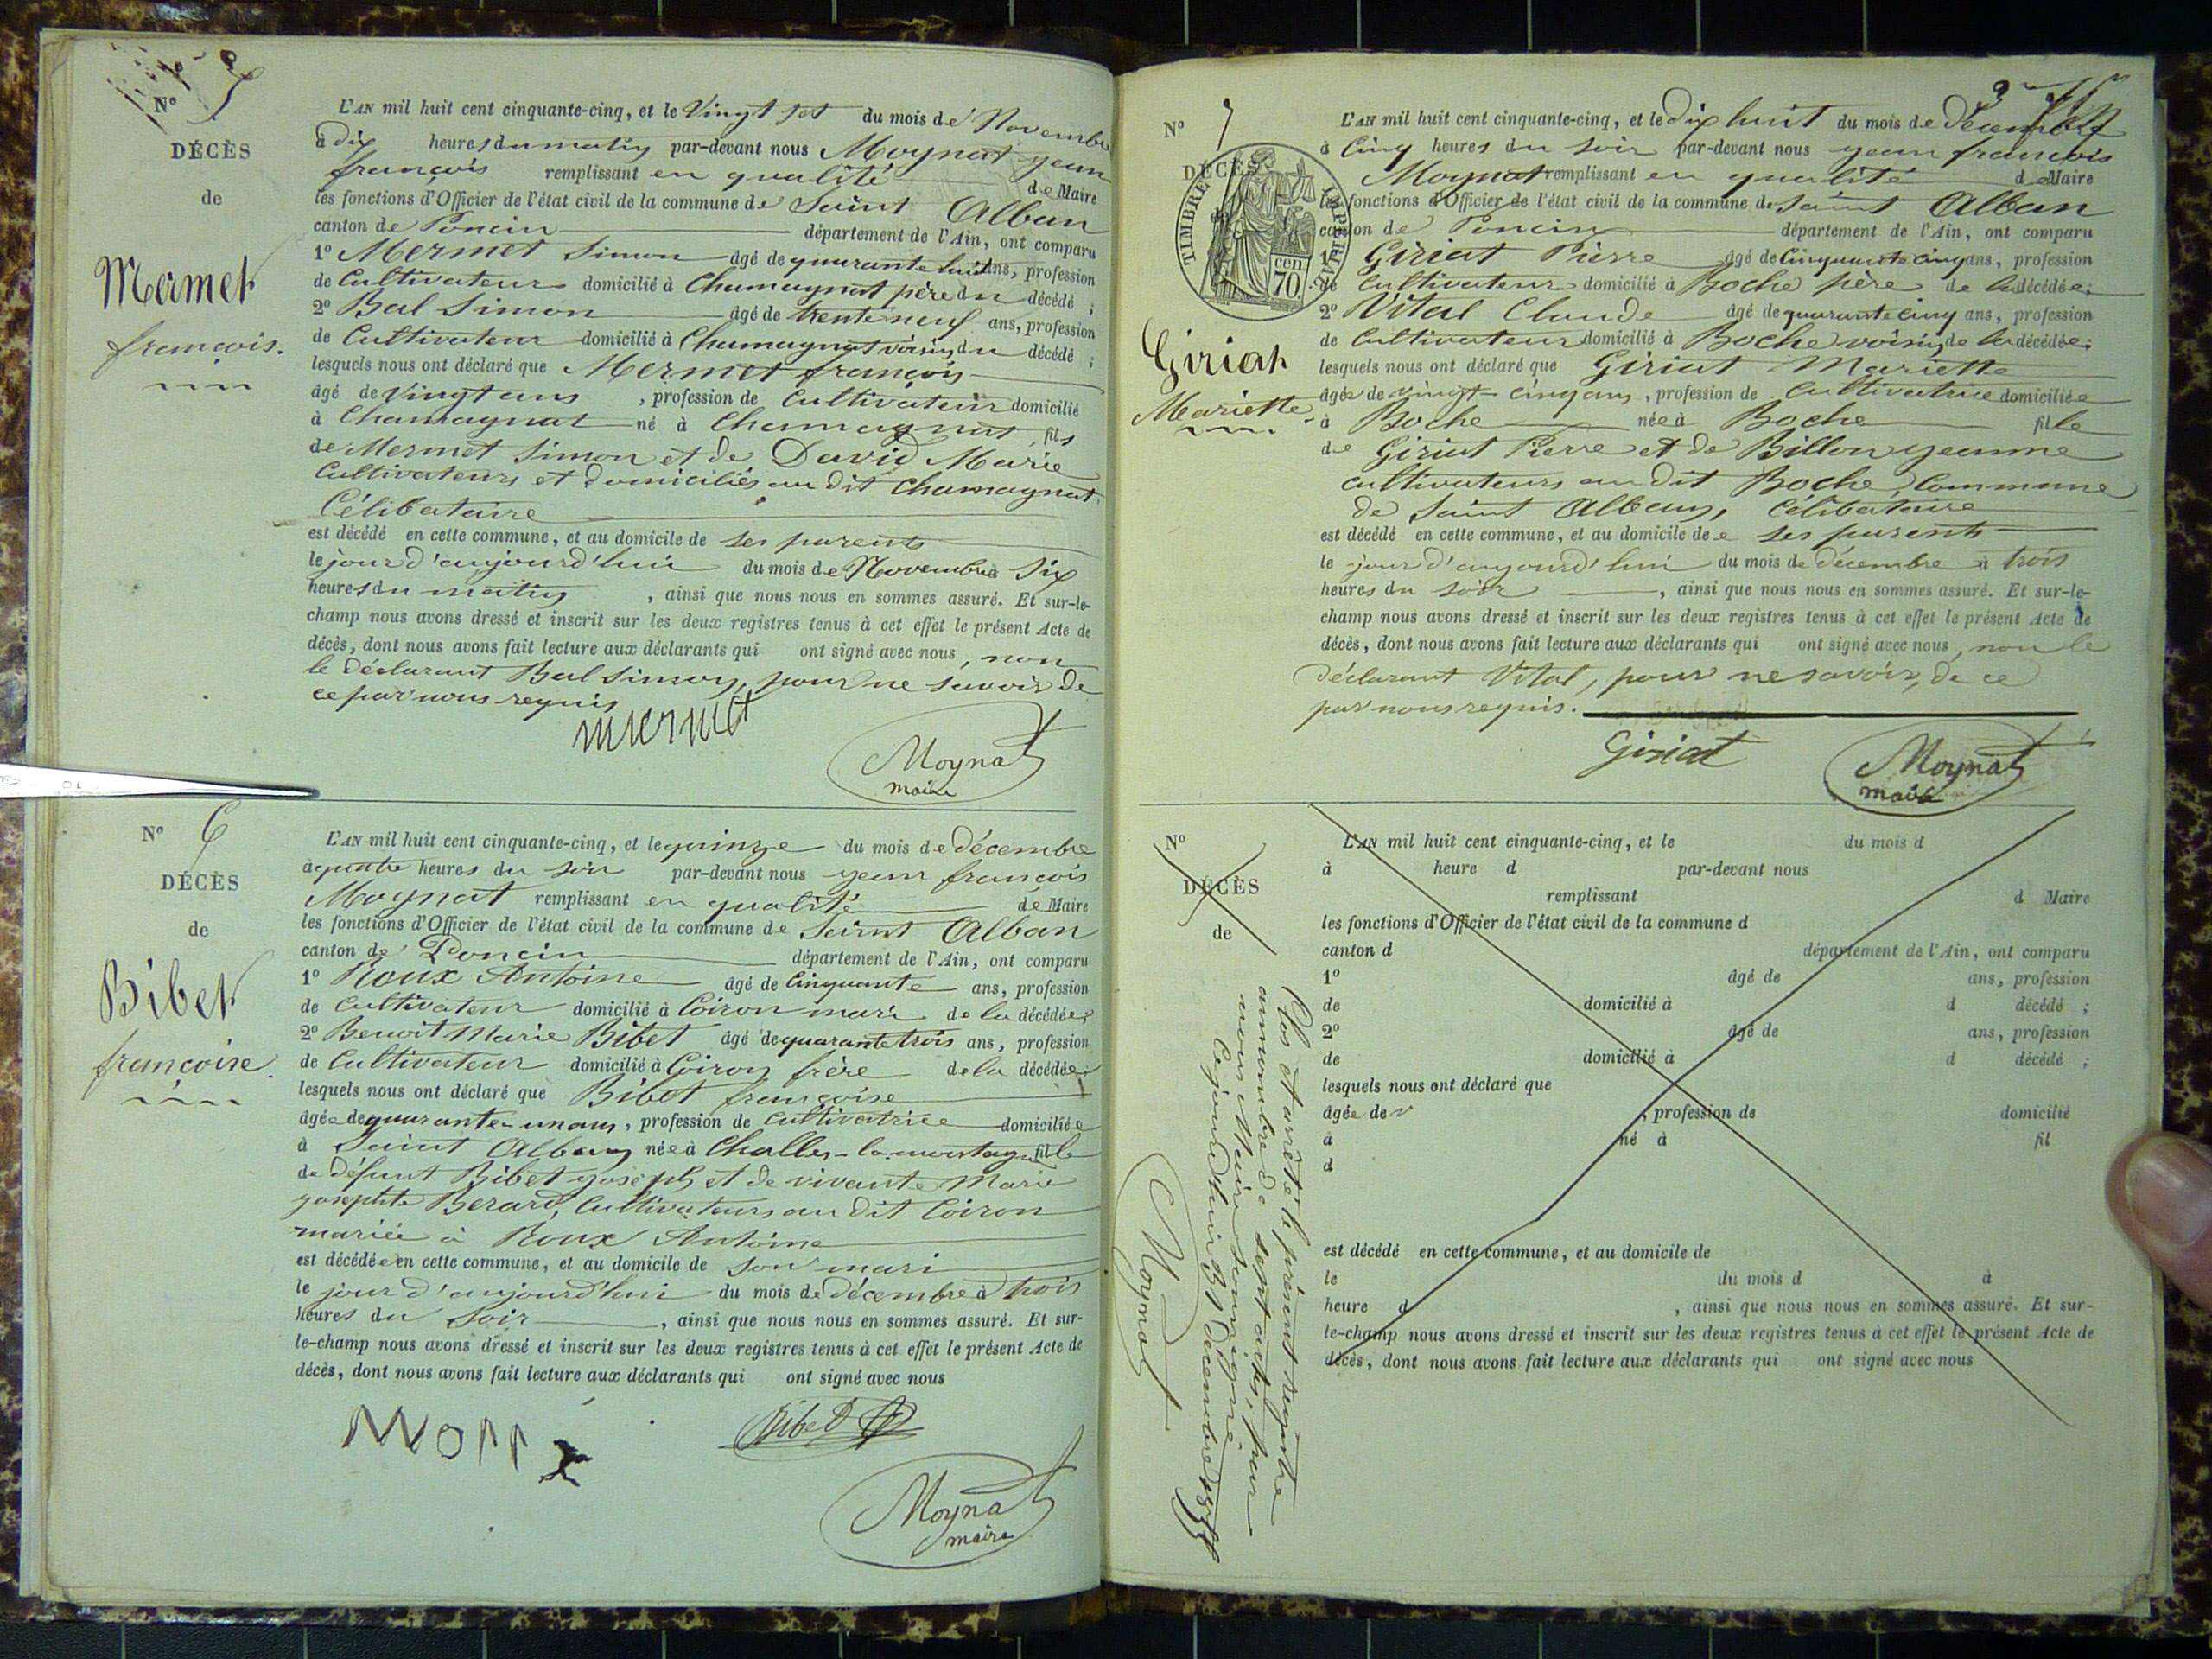 N° 5
DÉCÈS
de
Mermet
françois.
L'AN mil huit cent cinquante-cinq, et le Vingt sept du mois de Novembre
à dix heures du matin par-devant nous Moynat jean
françois remplissant en qualité de Maire
les fonctions d'Officier de l'état civil de la commune de Saint Alban
canton de Poncin département de l'Ain, ont comparu
1° Mermet Simon âgé de quarante huit ans, profession
de Cultivateur domicilié à Chamagnat père du décédé ;
2° Bal Simon âgé de trente neuf ans, profession
de Cultivateur domicilié à Chamagnat voisin du décédé ;
lesquels nous ont déclaré que Mermet françois
âgé de Vingt ans, profession de Cultivateur domicilié
à Chamagnat né à Chamagnat, fils
de Mermet Simon et de David Marie
Cultivateurs et domiciliés au dit Chamagnat,
Célibataire
est décédé en cette commune, et au domicile de ses parents
le jour d'aujourd'hui du mois de Novembre à Six
heures du matin, ainsi que nous nous en sommes assuré. Et sur-le-
champ nous avons dressé et inscrit sur les deux registres tenus à cet effet le présent Acte de
décès, dont nous avons fait lecture aux déclarants qui ont signé avec nous, non
le déclarant Bal Simon, pour ne savoir de
ce par nous requis
mermet
Moynat
maire
N° 6
DÉCÈS
de
Bibet
françoise.
L'AN mil huit cent cinquante-cinq, et le quinze du mois de décembre
à quatre heures du soir par-devant nous jean françois
Moynat remplissant en qualité de Maire
les fonctions d'Officier de l'état civil de la commune de Saint Alban
canton de Poncin département de l'Ain, ont comparu
1° Roux Antoine âgé de Cinquante ans, profession
de Cultivateur domicilié à Coiron mari de la décédée ;
2° Benoit Marie Bibet âgé de quarante trois ans, profession
de Cultivateur domicilié à Coiron frère de la décédée ;
lesquels nous ont déclaré que Bibet françoise
âgée de quarante-un ans, profession de Cultivatrice domiciliée
à Saint Alban née à Challes-la-montagne fille
de défunt Bibet joseph et de vivante Marie
josephte Berard, Cultivateurs au dit Coiron
mariée à Roux Antoine
est décédée en cette commune, et au domicile de son mari
le jour d'aujourd'hui du mois de décembre à trois
heures du Soir, ainsi que nous nous en sommes assuré. Et sur-
le-champ nous avons dressé et inscrit sur les deux registres tenus à cet effet le présent Acte de
décès, dont nous avons fait lecture aux déclarants qui ont signé avec nous
Bibet
Moynat
maire
N° 7
DÉCÈS
TIMBRE IMPERIAL
70 cen.
Giriat
Mariette
L'AN mil huit cent cinquante-cinq, et le dix huit du mois de décembre
à Cinq heures du soir par-devant nous jean françois
Moynat remplissant en qualité de Maire
les fonctions d'Officier de l'état civil de la commune de Saint Alban
canton de Poncin département de l'Ain, ont comparu
1° Giriat Pierre âgé de Cinquante cinq ans, profession
de Cultivateur domicilié à Boche père de la décédée ;
2° Vital Claude âgé de quarante cinq ans, profession
de Cultivateur domicilié à Boche voisin de la décédée ;
lesquels nous ont déclaré que Giriat Mariette
âgée de vingt-cinq ans, profession de Cultivatrice domiciliée
à Boche née à Boche fille
de Giriat Pierre et de Billon jeanne
cultivateurs au dit Boche, Commune
de Saint Alban, Célibataire
est décédé en cette commune, et au domicile de ses parents
le jour d'aujourd'hui du mois de décembre à trois
heures du soir, ainsi que nous nous en sommes assuré. Et sur-le-
champ nous avons dressé et inscrit sur les deux registres tenus à cet effet le présent Acte de
décès, dont nous avons fait lecture aux déclarants qui ont signé avec nous, non le
déclarant Vital, pour ne savoir, de ce
par nous requis.
Giriat
Moynat
maire
N°
DÉCÈS
de
L'AN mil huit cent cinquante-cinq, et le du mois d
à heure d par-devant nous
remplissant d Maire
les fonctions d'Officier de l'état civil de la commune d
canton d département de l'Ain, ont comparu
1° âgé de ans, profession
de domicilié à d décédé ;
2° âgé de ans, profession
de domicilié à d décédé ;
lesquels nous ont déclaré que
âgée de, profession de domicilié
à né à fil
d
est décédé en cette commune, et au domicile de
le du mois d à
heure d, ainsi que nous nous en sommes assuré. Et sur-
le-champ nous avons dressé et inscrit sur les deux registres tenus à cet effet le présent Acte de
décès, dont nous avons fait lecture aux déclarants qui ont signé avec nous
Clos et arrêté le présent registre
au nombre de sept actes, par
nous Maire soussigné
Cejourd'huir 31 décembre
Moynat